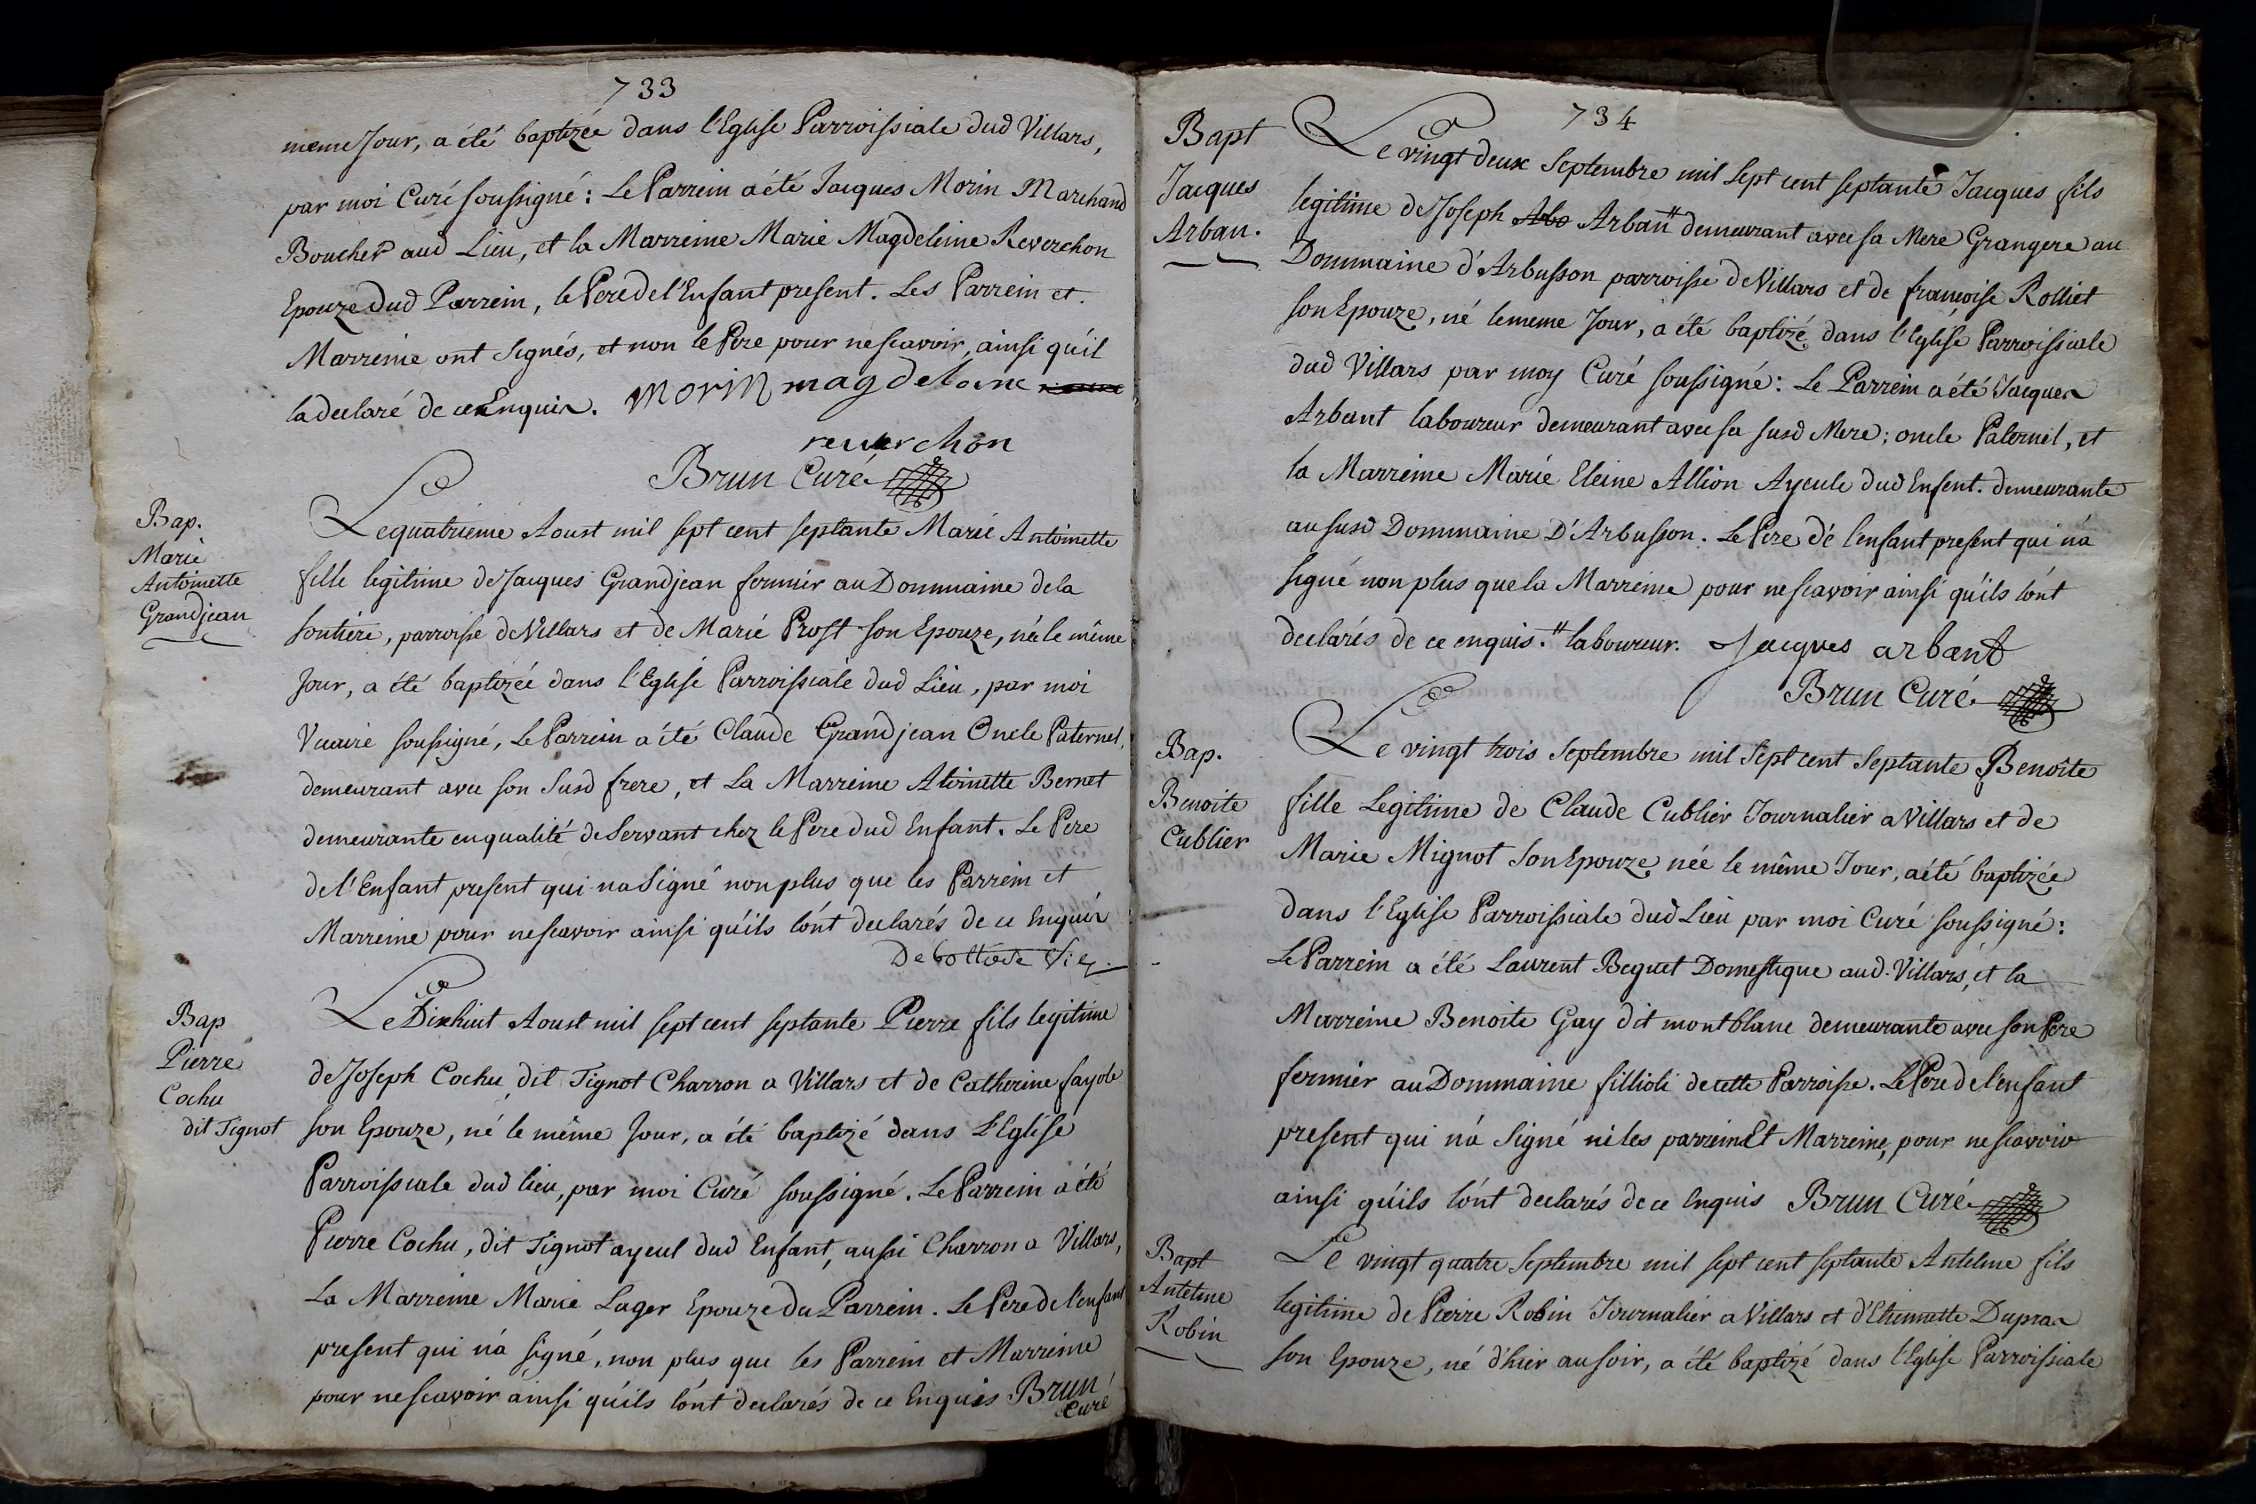 733
meme Jour, a été baptizée dans l'Eglise Parroissiale dud Villars,
par moi Curé soussigné : Le Parrein a été Jacques Morin Marchand
Boucher aud Lieu, et la Marreine Marie Magdeleine Reverchon
Epouze dud Parrein, le Pere de l'Enfant present. Les Parrein et
Marreine ont signés, et non le Pere pour ne scavoir, ainsi qu'il
la declaré de ce Enquis. Morin magdeleine
reverchon
Brun Curé
Bap.
Marie
Antoinette
Grandjean
Le quatrieme Aoust mil sept cent septante Marie Antoinette
fille legitime de Jacques Grandjean fermier au Dommaine de la
, parroisse de Villars et de Marie Prost son Epouze, née le même
Jour, a été baptizée dans l'Eglise Parroissiale dud Lieu, par moi
Vicaire soussigné, Le Parrein a été Claude Grandjean Oncle Paternel,
demeurant avec son susd frere, et La Marreine Atoinette Bernet
demeurante en qualité de Servant chez le Pere dud Enfant. Le Pere
de l'Enfant present qui na Signé non plus que les Parrein et
Marreine pour ne scavoir ainsi qu'ils l'ont declarés de ce Enquis
Bap
Pierre
Cochu
dit Tignot
Le Dixhuit Aoust mil sept cent septante Pierre fils legitime
de Joseph Cochu, dit Tignot Charron a Villars et de Catherine fayole
son Epouze, né le même Jour, a été baptizé dans L'Eglise
Parroissiale dud lieu, par moi Curé soussigné. Le Parrein a été
Pierre Cochu, dit Tignot ayeul dud Enfant, aussi Charron a Villars,
La Marreine Marie Lager Epouze du Parrein. Le Pere de l'enfant
present qui n'a signé, non plus que les Parrein et Marreine
pour ne scavoir ainsi qu'ils l'ont declarés de ce Enquis Brun
Curé
734
Bapt
Jacques
Arban.
Le vingt deux Septembre mil sept cent septante Jacques fils
legitime de Joseph Arban" demeurant avec sa Mere Grangere au
Dommaine d'Arbusson parroisse de Villars et de francoise Rolliet
son Epouze, né le meme Jour, a été baptizé dans l'Eglise Parroissiale
dud Villars par moy Curé soussigné : Le Parrein a été Jacques
Arbant laboureur demeurant avec sa susd Mere ; oncle Paternel, et
la Marreine Marie Eleine Allion Ayeule dud Enfent. demeurante
au susd Dommaine D'Arbusson. Le Pere de l'enfant present qui n'a
signé non plus que la Marreine pour ne scavoir ainsi qu'ils l'ont
declarés de ce enquis. " laboureur. Jacques arbant
Brun Curé
Bap.
Benoite
Cublier
Le vingt trois Septembre mil Sept cent Septante Benoîte
fille Legitime de Claude Cublier Journalier a Villars et de
Marie Mignot son Epouze, née le même Jour, a été baptizée
dans l'Eglise Parroissiale dud Lieu par moi Curé soussigné :
Le Parrein a été Laurent Beguet Domestique aud. Villars, et la
Marreine Benoite Gay dit montblanc demeurante avec son Pere
fermier au Dommaine fillioli de cette Parroisse. Le Pere de l'enfant
present qui n'a Signé ni les parrein Et Marreine, pour ne scavoir
ainsi qu'ils l'ont declarés de ce Enquis Brun Curé
Bapt
Antelme
Robin
Le vingt quatre Septembre mil sept cent septante Antelme fils
legitime de Pierre Robin Journalier a Villars et d'Etiennette Dupras
son Epouze, né d'hier au soir, a été baptizé dans l'Eglise Parroissiale